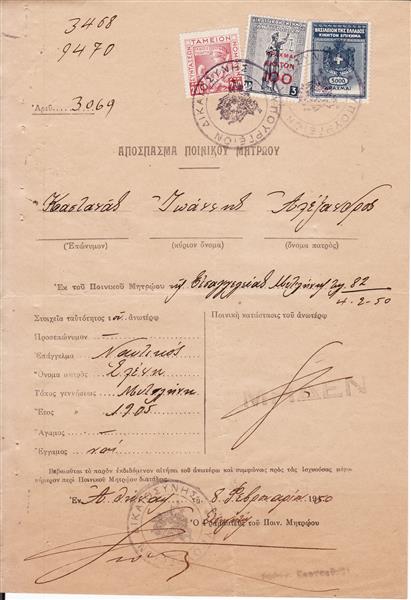 3468
9470
ΤΑΜΕΙΟΝ
ΒΑΣΙΛΕΙΟΝ ΤΗΣ ΕΛΛΑΔΟΣ
ΚΙΝΗΤΟΝ ΕΠΙΣΗΜΑ
100
3
5000
ΔΡΑΧΜΑΙ
Ἀριθ. 3069
ΥΠΟΥΡΓΕΙΟΝ ΔΙΚΑΙΟΣΥΝΗΣ
ΑΠΟΣΠΑΣΜΑ ΠΟΙΝΙΚΟΥ ΜΗΤΡΩΟΥ
Καστανᾶς Ἰωάννης Ἀλέξανδρος
(Ἐπώνυμον) (κύριον ὄνομα) (ὄνομα πατρὸς)
Ἐκ τοῦ Ποινικοῦ Μητρώου τῆς Εἰσαγγελίας Μυτιλήνης 82
4-2-50
Στοιχεῖα ταὐτότητος τοῦ ἀνωτέρω
Ποινικὴ κατάστασις τοῦ ἀνωτέρω
Προσωνύμιον —
Ἐπάγγελμα Ναυτικὸς
Ὄνομα μητρὸς Ἑλένη
Τόπος γεννήσεως Μυτιλήνη
Ἔτος » 1905
Ἄγαμος —
Ἔγγαμος ναί
ΜΗΔΕΝ
Βεβαιοῦται τὸ παρὸν ἐκδιδόμενον αἰτήσει τοῦ ἀνωτέρω καὶ συμφώνως πρὸς τὰς ἰσχυούσας
περὶ Ποινικοῦ Μητρώου διατάξεις.
Ἐν Ἀθήναις τῇ 8 Φεβρουαρίου 1950
Ὁ Γραμματεὺς τοῦ Ποιν. Μητρώου